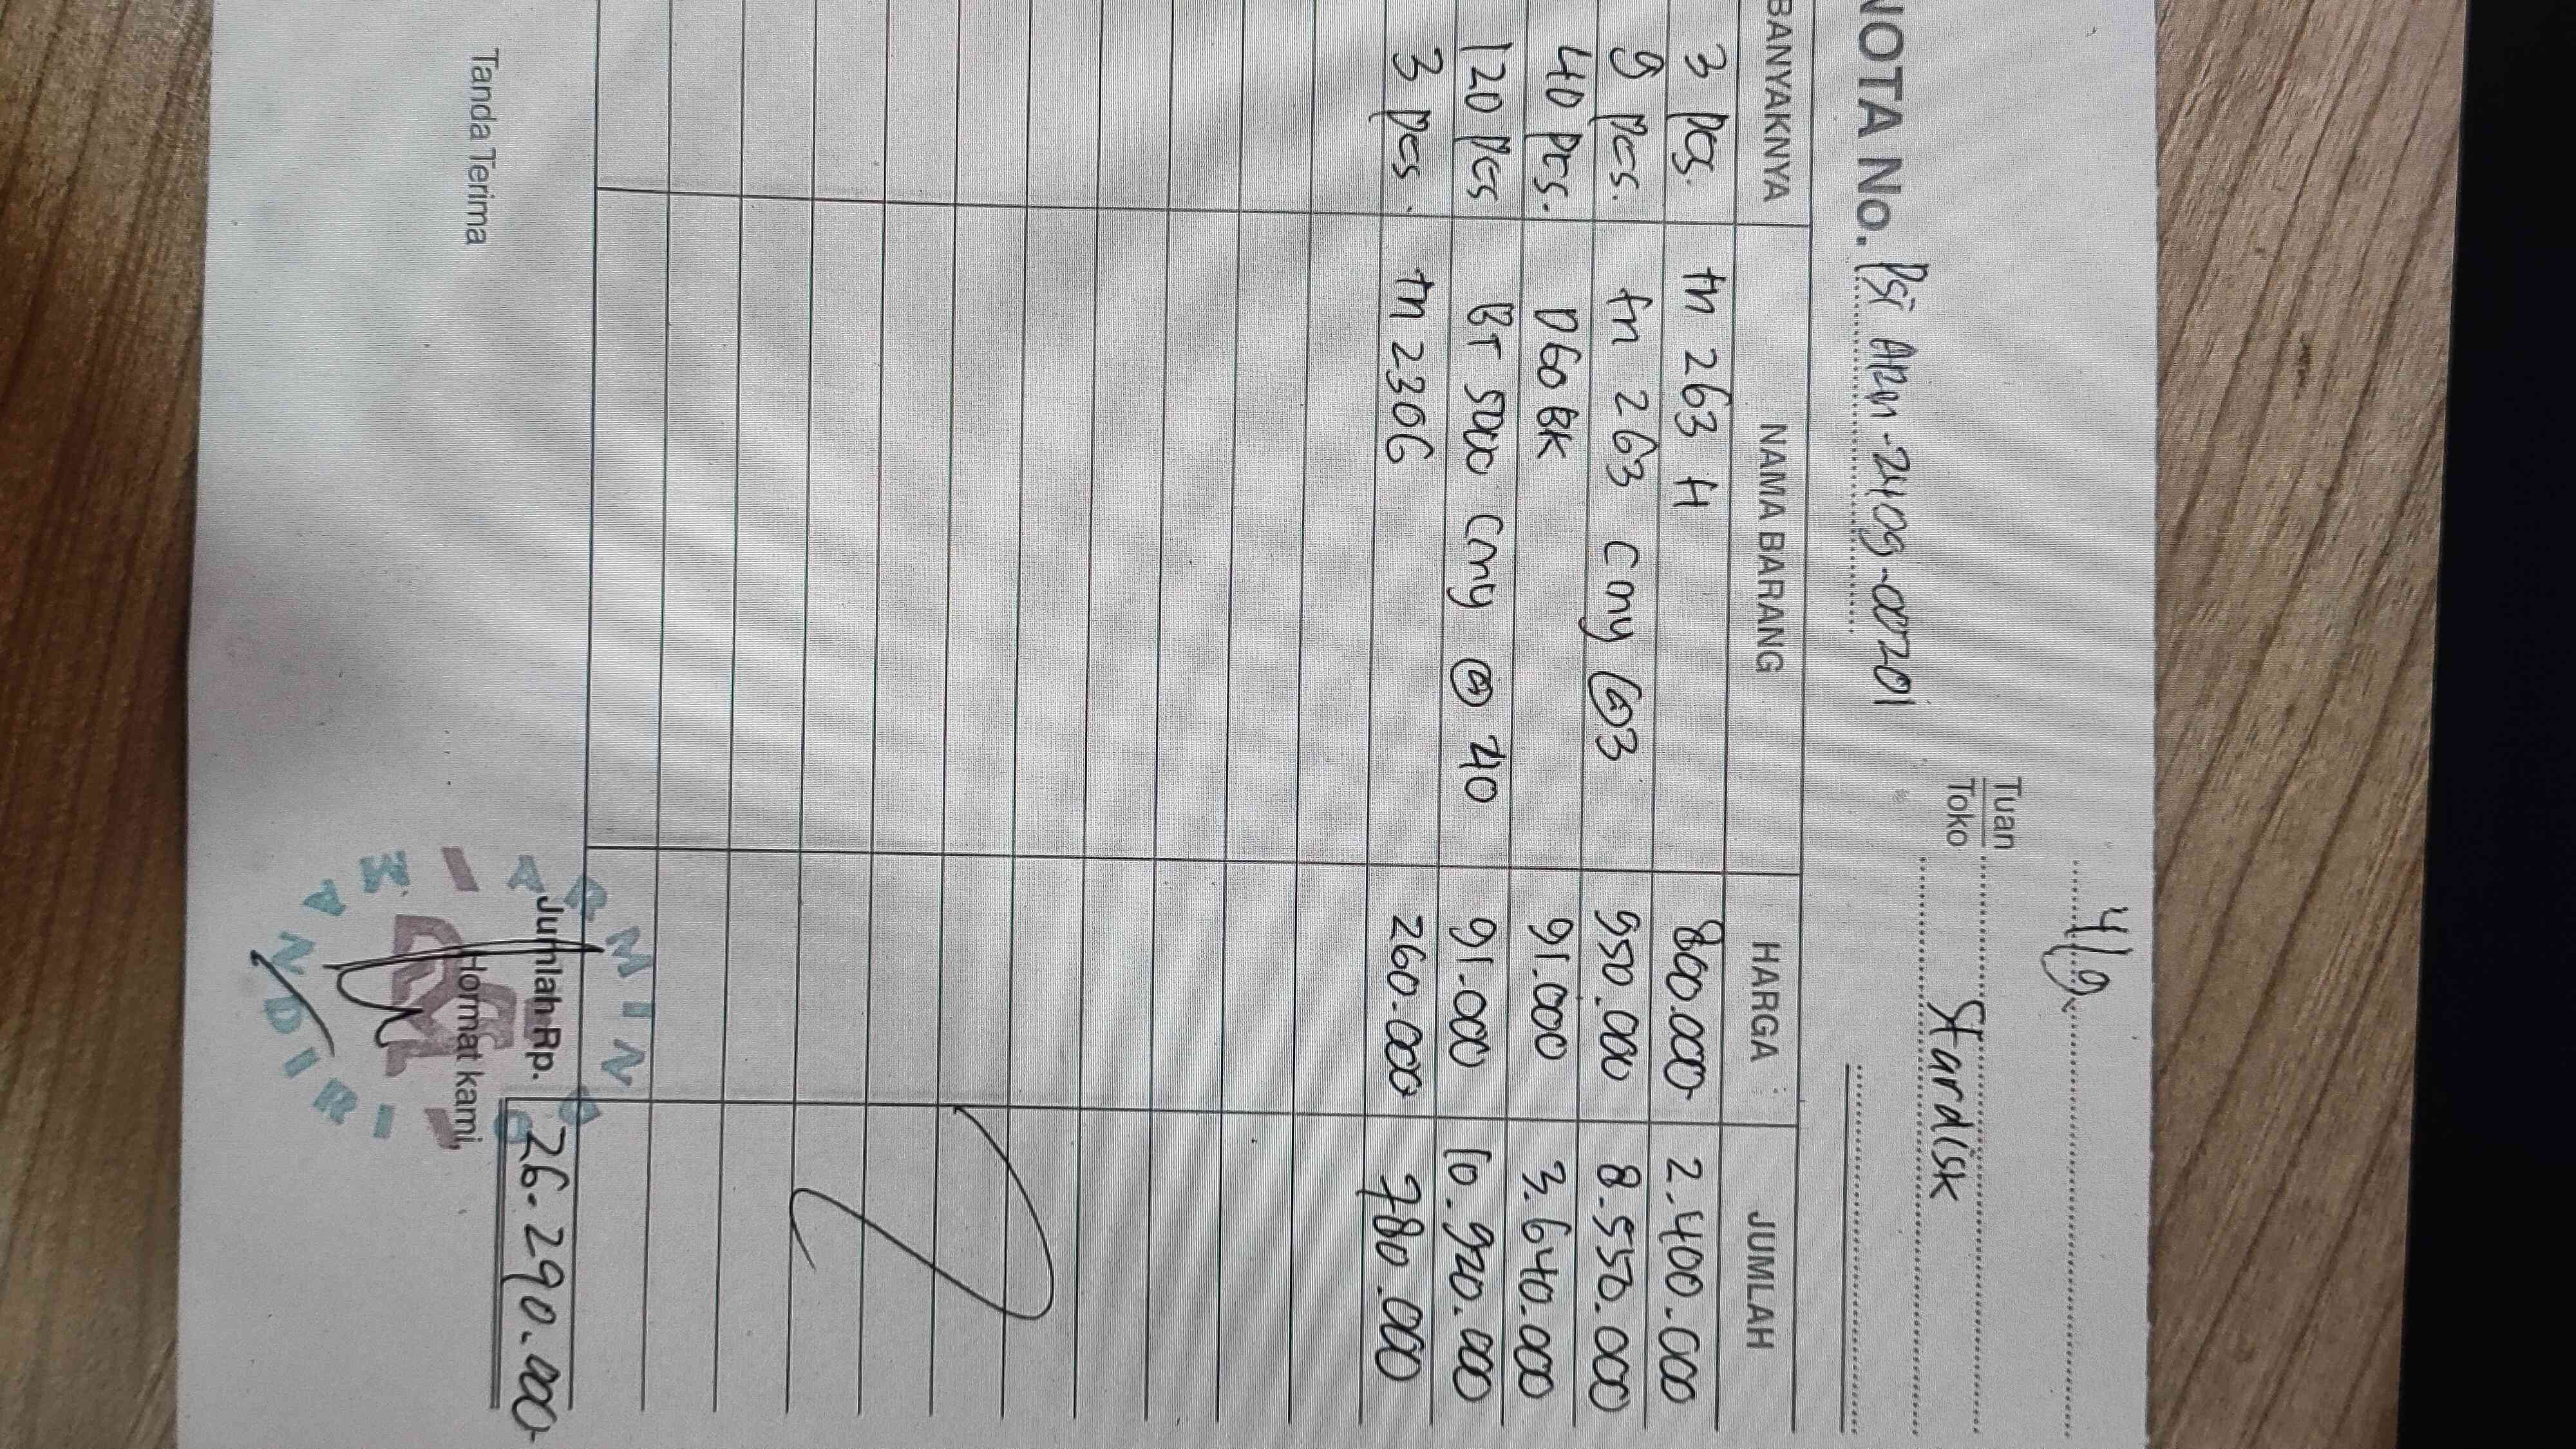 4/9
Tuan
Toko
Stardisk
NOTA No. PSI ARM-2409-00201
BANYAKNYA NAMA BARANG HARGA JUMLAH
3 pcs. tn 263 H 800.000 2.400.000
9 pcs. tn 263 cmy @3 950.000 8.550.000
40 pcs. D60 BK 91.000 3.640.000
120 pcs BT 5000 cmy @ 40 91.000 10.920.000
3 pcs. tn 2306 260.000 780.000
Jumlah Rp. 26.290.000
Tanda Terima Hormat kami,
ARMINDO
MANDIRI